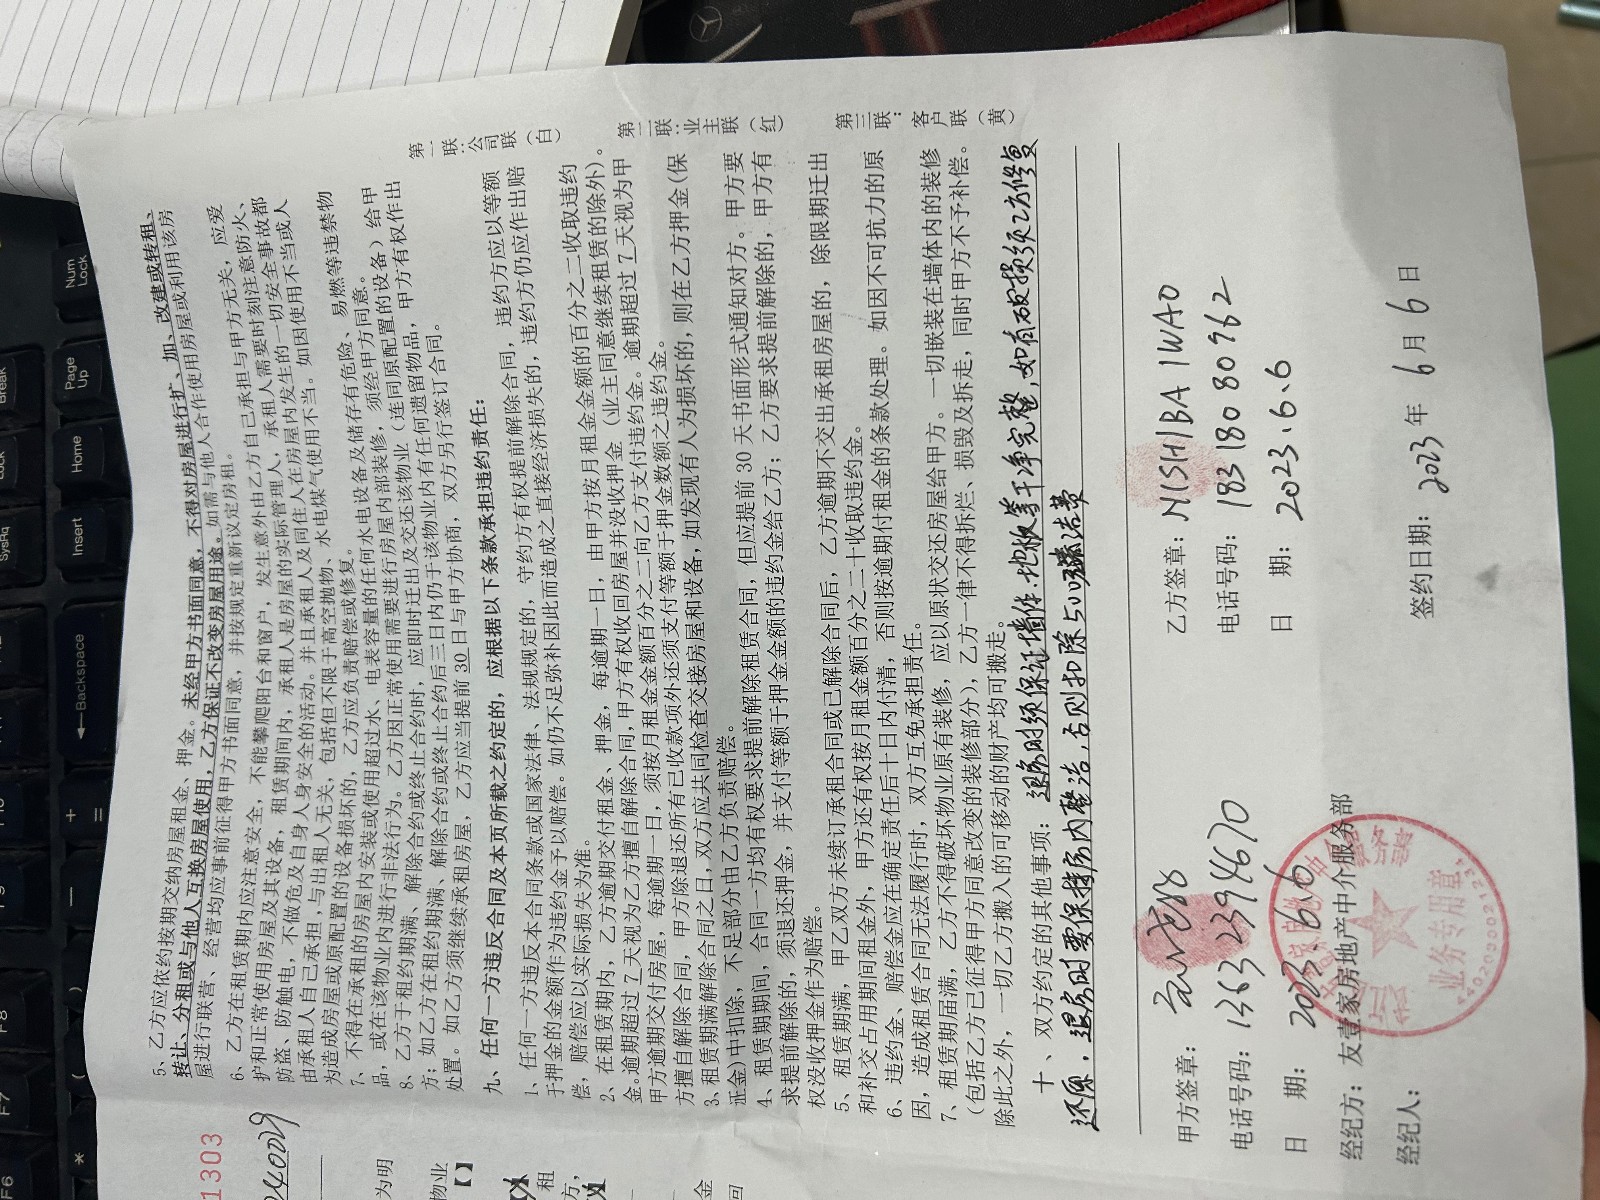 5、乙方应依约按期交纳房屋租金、押金。未经甲方书面同意，不得对房屋进行扩、加、改建或转租、
转让、分租或与他人互换房屋使用，乙方保证不改变房屋用途。如需与他人合作使用房屋或利用该房
屋进行联营、经营均应事前征得甲方书面同意，并按规定重新议定房租。
6、乙方在租赁期内应注意安全，不能攀爬阳台和窗户，发生意外由乙方自己承担与甲方无关，应爱
护和正常使用房屋及其设备，租赁期间内，承租人是房屋的实际管理人，承租人需要时刻注意防火、
防盗、防触电，不做危及自身人身安全的活动。并且承租人及同住人在房屋内发生的一切安全事故都
由承租人自己承担，与出租人无关，包括但不限于高空抛物、水电煤气使用不当。如因使用不当或人
为造成房屋或原配置的设备损坏的，乙方应负责赔偿或修复。
7、不得在承租的房屋内安装或使用超过水、电表容量的任何水电设备及储存有危险、易燃等违禁物
品，或在该物业内进行非法行为。乙方因正常使用需要进行房屋内部装修，须经甲方同意。
8、乙方于租约期满、解除合约或终止合约时，应即时迁出及交还该物业（连同原配置的设备）给甲
方；如乙方在租约期满、解除合约或终止合约后三日内仍于该物业内有任何遗留物品，甲方有权作出
处置。如乙方须继续承租房屋，乙方应当提前 30 日与甲方协商，双方另行签订合同。
九、任何一方违反合同及本页所载之约定的，应根据以下条款承担违约责任：
1、任何一方违反本合同条款或国家法律、法规规定的，守约方有权提前解除合同，违约方应以等额
于押金的金额作为违约金予以赔偿。如仍不足弥补因此而造成之直接经济损失的，违约方仍应作出赔
偿，赔偿应以实际损失为准。
2、在租赁期内，乙方逾期交付租金、押金，每逾期一日，由甲方按月租金金额的百分之二收取违约
金。逾期超过 7 天视为乙方擅自解除合同，甲方有权收回房屋并没收押金（业主同意继续租赁的除外）。
甲方逾期交付房屋，每逾期一日，须按月租金金额百分之二向乙方支付违约金。逾期超过 7 天视为甲
方擅自解除合同，甲方除退还所有已收款项外还须支付等额于押金数额之违约金。
3、租赁期满解除合同之日，双方应共同检查交接房屋和设备，如发现有人为损坏的，则在乙方押金（保
证金）中扣除，不足部分由乙方负责赔偿。
4、租赁期期间，合同一方均有权要求提前解除租赁合同，但应提前 30 天书面形式通知对方。甲方要
求提前解除的，须退还押金，并支付等额于押金金额的违约金给乙方；乙方要求提前解除的，甲方有
权没收押金作为赔偿。
5、租赁期满，甲乙双方未续订承租合同或已解除合同后，乙方逾期不交出承租房屋的，除限期迁出
和补交占用期间租金外，甲方还有权按月租金额百分之二十收取违约金。
6、违约金、赔偿金应在确定责任后十日内付清，否则按逾期付租金的条款处理。如因不可抗力的原
因，造成租赁合同无法履行时，双方互免承担责任。
7、租赁期届满，乙方不得破坏物业原有装修，应以原状交还房屋给甲方。一切嵌装在墙体内的装修
（包括乙方已征得甲方同意改变的装修部分），乙方一律不得拆烂、损毁及拆走，同时甲方不予补偿。
除此之外，一切乙方搬入的可移动的财产均可搬走。
十、双方约定的其他事项：退房时须保证墙体.地板等干净完整，如有破损须乙方修复
还原，退房时要保持房内整洁，否则扣除500清洁费
甲方签章：
电话号码：13632394670
日 期：2023.6.6
经纪方：友壹家房地产中介服务部
经纪人：
乙方签章：NISHIBA IWAO
电话号码：18318080962
日 期：2023.6.6
签约日期：2023 年 6 月 6 日
业务专用章
第一联：公司联（白）
第二联：业主联（红）
第三联：客户联（黄）
1303
240029
为明
物业
【】
租
方，
金
回
Num Lock
Page Up
Home
Insert
Backspace
Break
SysRq
Lock
F6
F7
F8
F9